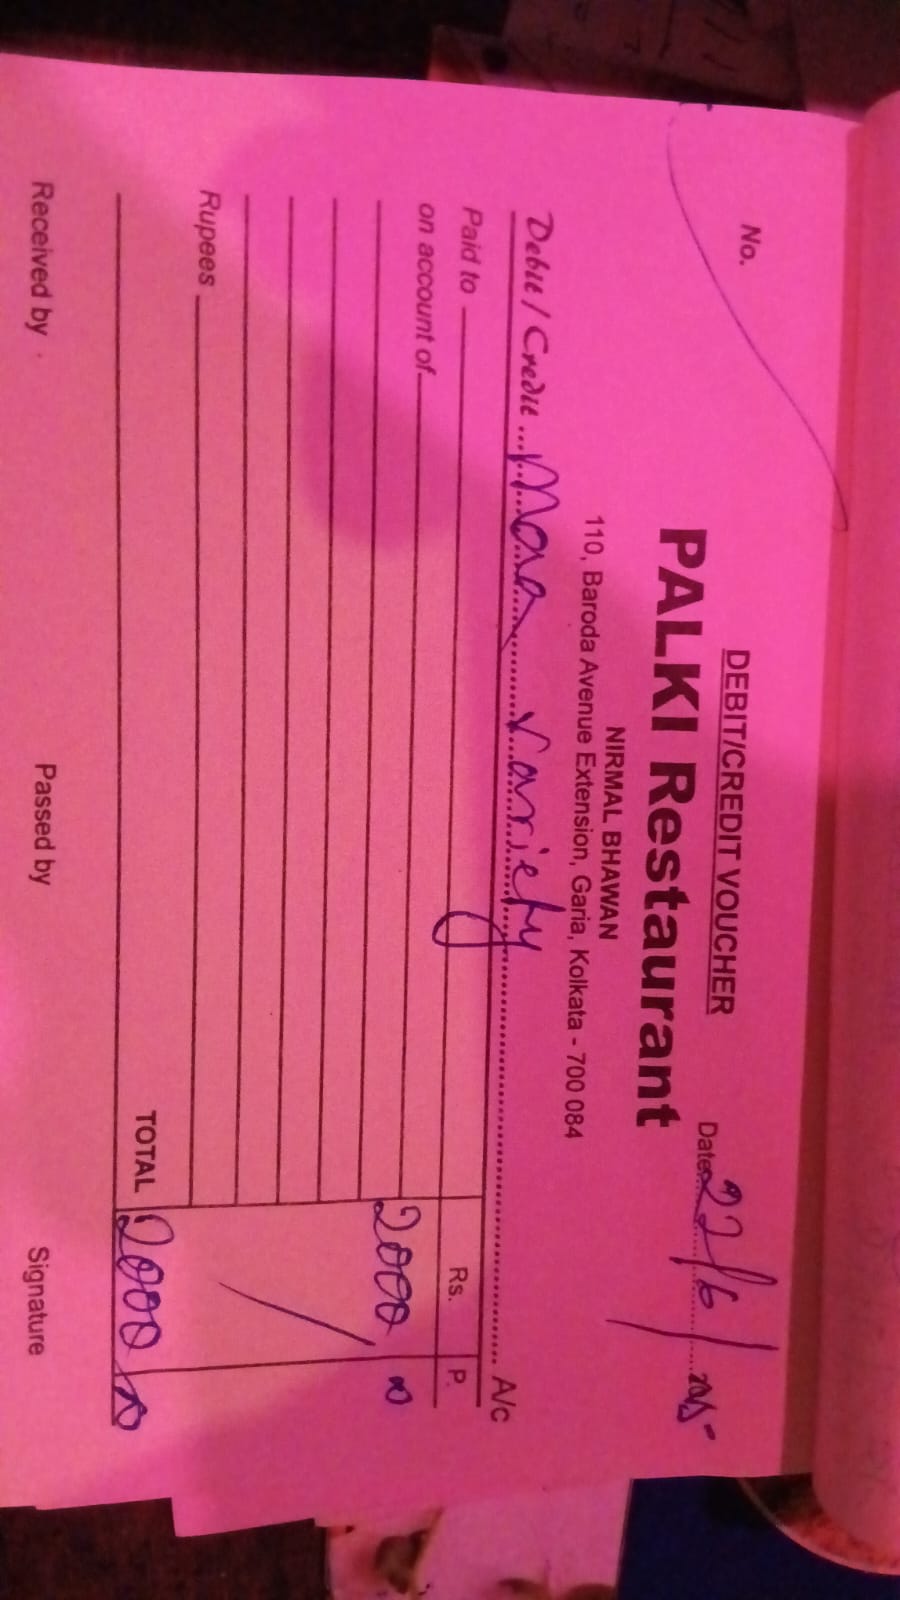 DEBIT/CREDIT VOUCHER
No.
Date 22/6/2025
PALKI Restaurant
NIRMAL BHAWAN
110, Baroda Avenue Extension, Garia, Kolkata - 700 084
Debit / Credit ... Mona Variety ... A/c
Paid to
Rs. P.
on account of
2000 00
Rupees
TOTAL 2000 00
Received by Passed by Signature